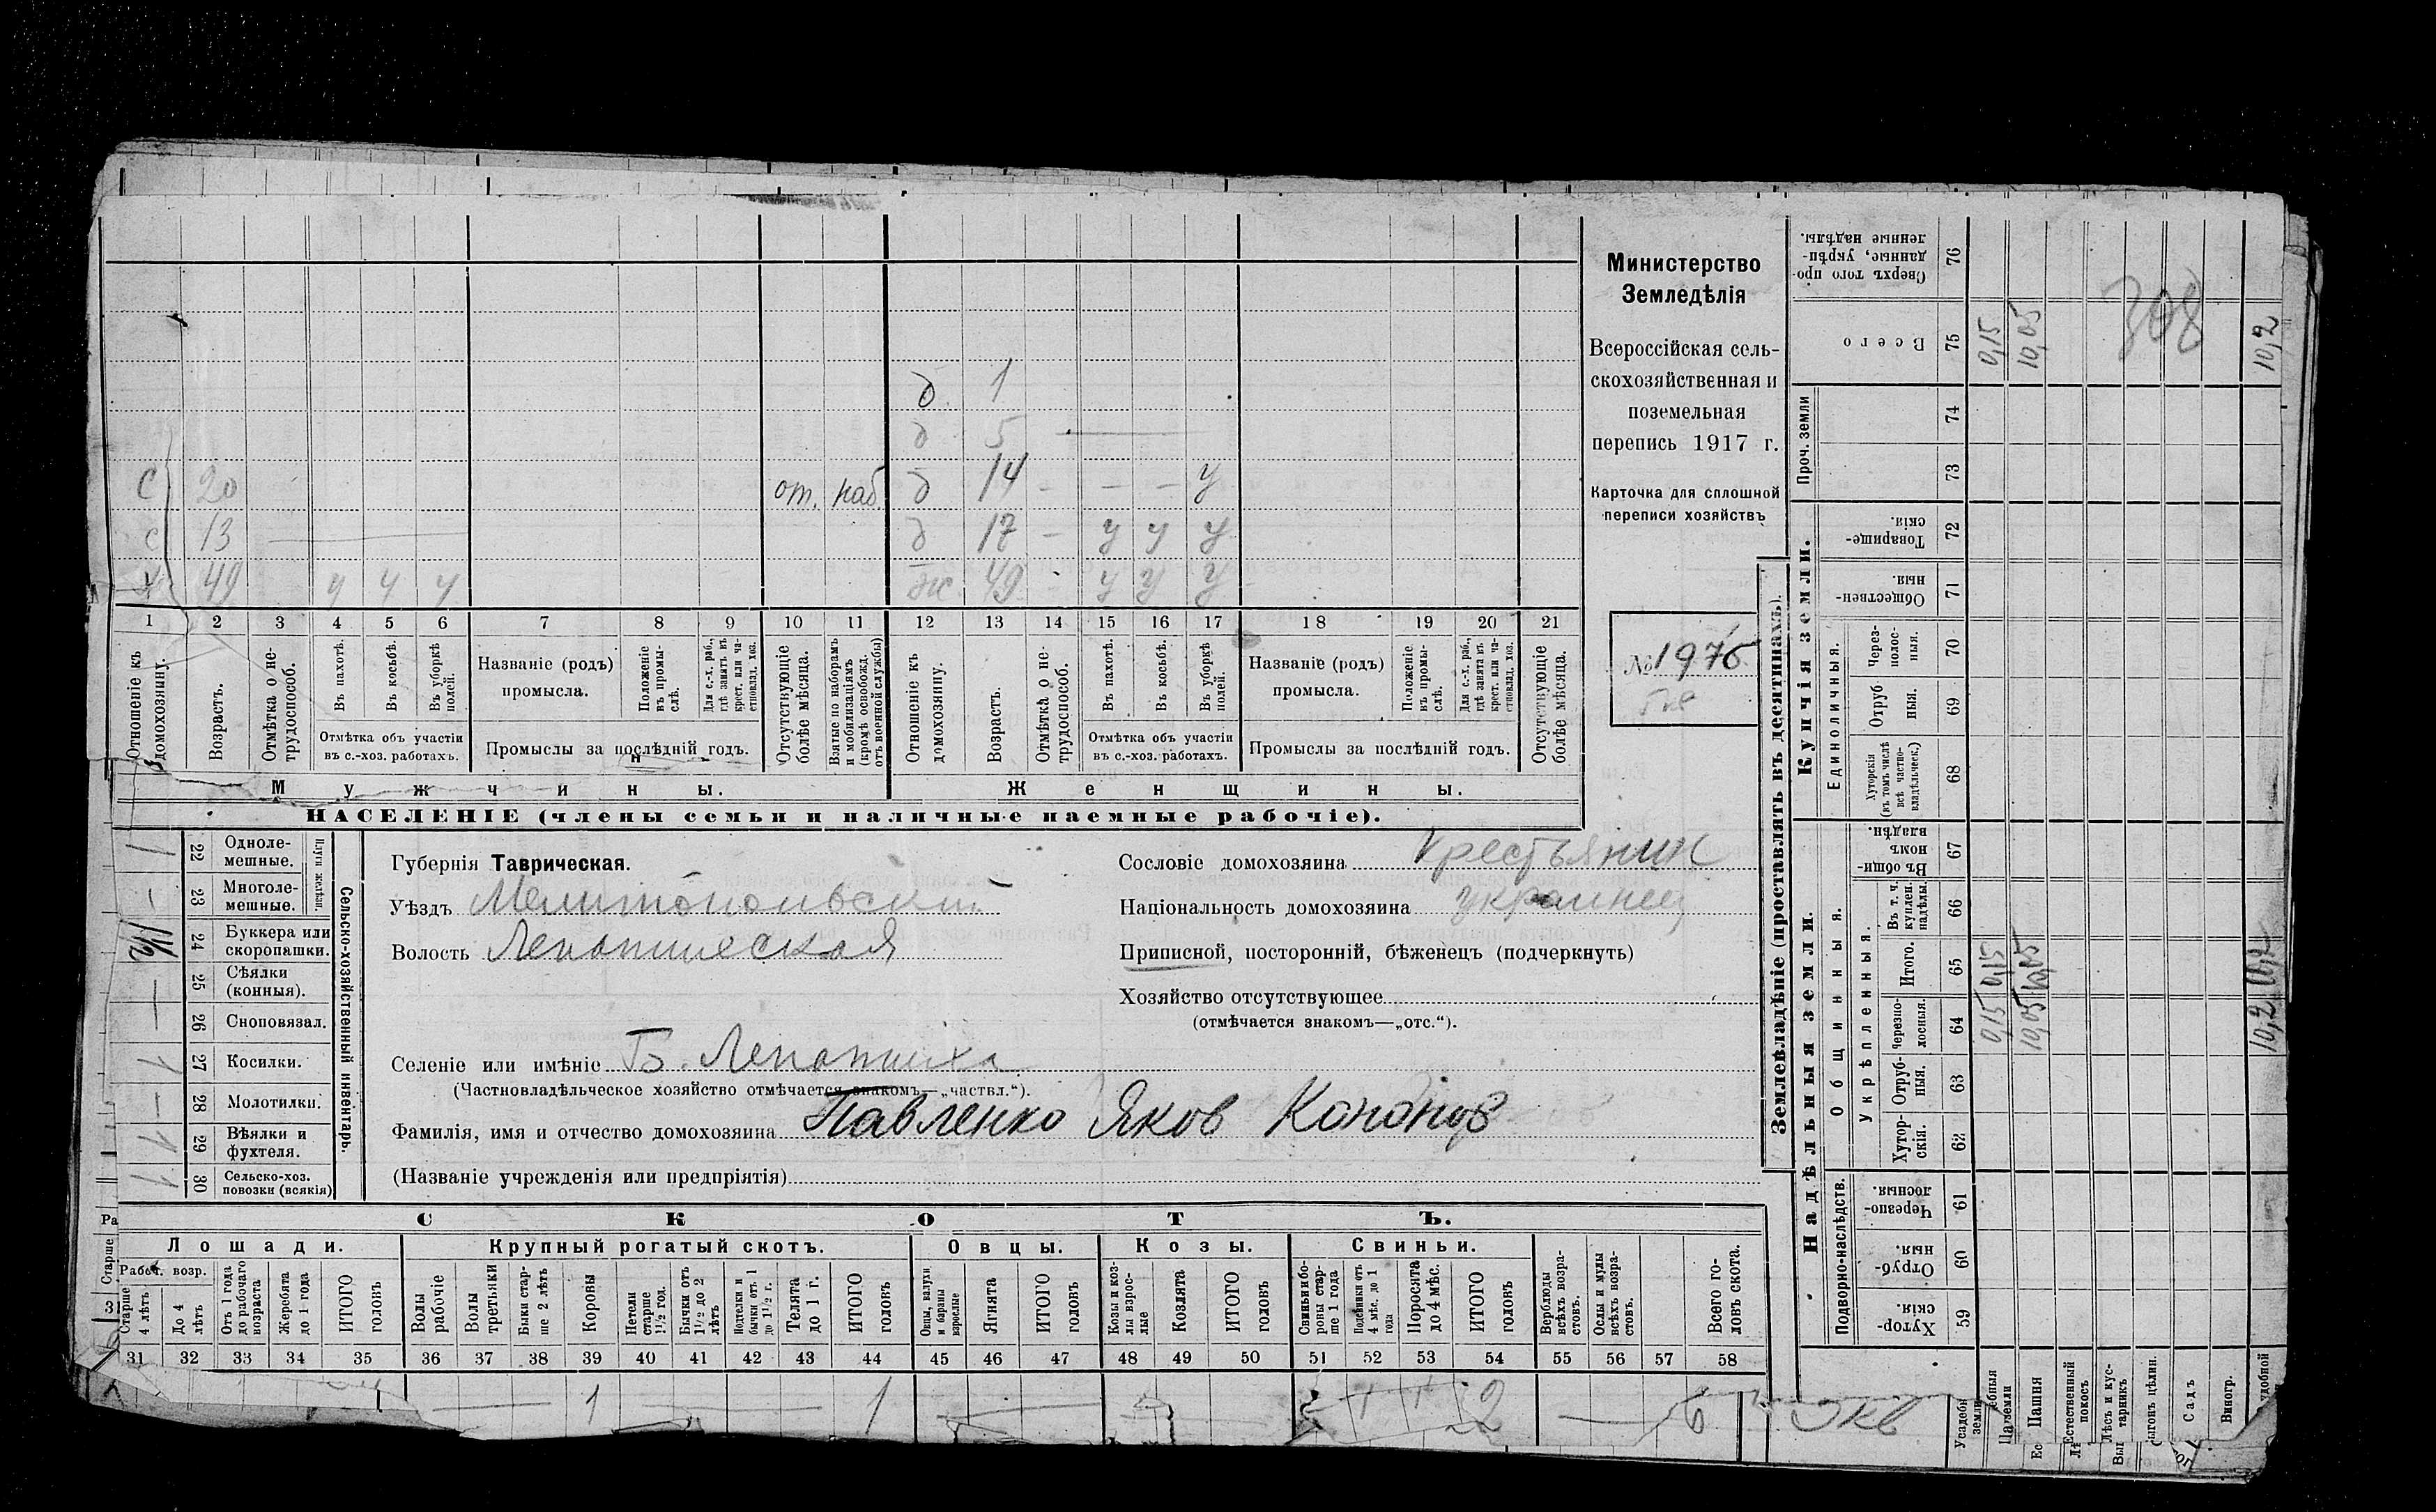 Министерство
Земледѣлія
Всероссійская сель-
скохозяйственная и
поземельная
перепись 1917 г.
Карточка для сплошной
переписи хозяйствъ
№ 1976
д. 1
д 5
с 20 от. наб. д 14 - - - у
с 13 д 17 - у у у
х 49 у у у ж. 49 - у у у
1 2 3 4 5 6 7 8 9 10 11 12 13 14 15 16 17 18 19 20 21
Отношеніе къ домохозяину.
Возрастъ.
Отмѣтка о не-трудоспособ.
Въ пахотѣ.
Въ косьбѣ.
Въ уборкѣ полей.
Отмѣтка объ участіи
въ с.-хоз. работахъ.
Названіе (родъ)
промысла.
Положеніе въ промы-слѣ.
Для с.-х. раб., гдѣ занятъ въ крест. или ча-стновлад. хоз.
Промыслы за послѣдній годъ.
Отсутствующіе болѣе мѣсяца.
Взятые по наборамъ и мобилизаціямъ (кромѣ освобожд. отъ военной службы)
Отношеніе къ домохозяину.
Возрастъ.
Отмѣтка о не-трудоспособ.
Въ пахотѣ.
Въ косьбѣ.
Въ уборкѣ полей.
Отмѣтка объ участіи
въ с.-хоз. работахъ.
Названіе (родъ)
промысла.
Положеніе въ промы-слѣ.
Для с.-х. раб., гдѣ занята въ крест. или ча-стновлад. хоз.
Промыслы за послѣдній годъ.
Отсутствующіе болѣе мѣсяца.
Мужчины. Женщины.
НАСЕЛЕНІЕ (члены семьи и наличные наемные рабочіе).
Сельско-хозяйственный инвентарь.
Плуги желѣзн.
22 Одноле-мешные. 1
23 Многоле-мешные. -
24 Буккера или скоропашки.
25 Сѣялки (конныя). —
26 Сноповязал. —
27 Косилки. 1
28 Молотилки. —
29 Вѣялки и фухтеля. 1
30 Сельско-хоз. повозки (всякія) 1
Губернія Таврическая.
Уѣздъ Мелитопольский
Волость Лепатихская
Селеніе или имѣніе Б. Лепатиха
(Частновладѣльческое хозяйство отмѣчается знакомъ—„частвл.“).
Фамилія, имя и отчество домохозяина Павленко Яков Кононов
(Названіе учрежденія или предпріятія)
Сословіе домохозяина крестьянин
Національность домохозяина украинец
Приписной, посторонній, бѣженецъ (подчеркнуть)
Хозяйство отсутствующее
(отмѣчается знакомъ—„отс.“).
СКОТЪ.
Лошади. Крупный рогатый скотъ. Овцы. Козы. Свиньи.
Рабоч. возр.
Старше 4 лѣтъ
До 4 лѣтъ
Отъ 1 года до рабочаго возраста
Жеребята до 1 года
ИТОГО головъ
Волы рабочіе
Волы третьяки
Быки стар-ше 2 лѣтъ
Коровы
Нетели старше 1½ год.
Бычки отъ 1½ до 2 лѣтъ
Подтелки и бычки отъ 1 до 1½ г.
Телята до 1 г.
ИТОГО головъ
Овцы, валухи и бараны взрослые
Ягнята
ИТОГО головъ
Козы и коз-лы взрос-лые
Козлята
ИТОГО головъ
Свиньи и бо-ровы стар-ше 1 года
Подсвинки отъ 4 мѣс. до 1 года
Поросята до 4 мѣс.
ИТОГО головъ
Верблюды всѣхъ возра-стовъ.
Ослы и мулы всѣхъ возра-стовъ.
Всего го-ловъ скота.
31 32 33 34 35 36 37 38 39 40 41 42 43 44 45 46 47 48 49 50 51 52 53 54 55 56 57 58
— 1 — 1 — 1 1 2 — 6
Землевладѣніе (проставлять въ десятинахъ).
Надѣльныя земли.
Подворно-наслѣдств.
Хутор-скія. 59
Отруб-ныя. 60
Черезпо-лосныя. 61
Общинныя.
Укрѣпленныя.
Хутор-скія. 62
Отруб-ныя. 63
Черезпо-лосныя. 64
Итого. 65
Въ т. ч. куплен. надѣлы. 66
Въ общи-номъ владѣн. 67
Купчія земли.
Единоличныя.
Хуторскія (въ томъ числѣ всѣ частно-владѣльческ.) 68
Отруб ныя. 69
Через-полос-ныя. 70
Обществен-ныя. 71
Товарище-скія. 72
Проч. земли
73
74
Всего 75
Сверхъ того про-данные, укрѣп-ленные надѣлы. 76
0,15 0,15 0,15
10,05 10,05 10,05
10,2 10,2 10,2
308
Усадебн земли
Пашня
Естественный покосъ
Лѣсъ и кус-тарникъ
Выгонъ цѣлин.
Садъ
Виногр.
удобной